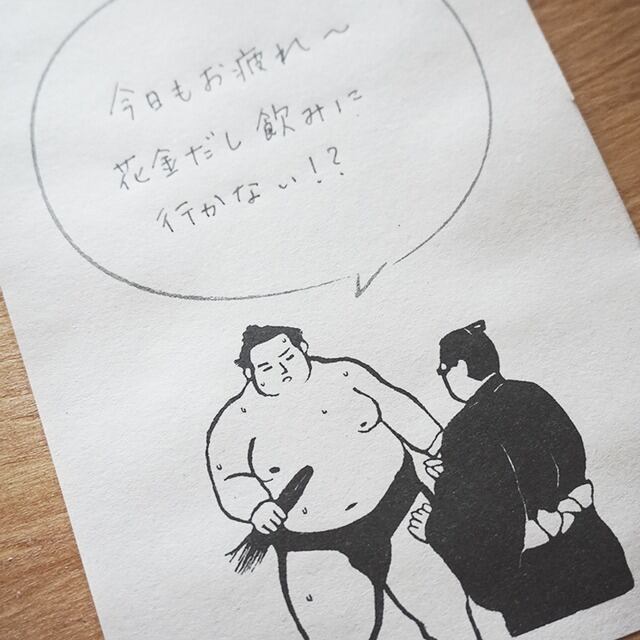 今日もお疲れ～
花金だし飲みに
行かない!?